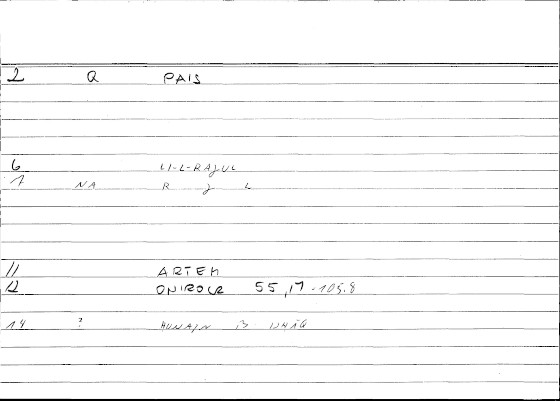 2 Q PAIS
6 LI-L-RAJUL
7 NA R J L
11 ARTEM
12 ONIROCR 55,17-105.8
14 ? HUNAIN B ISHAQ